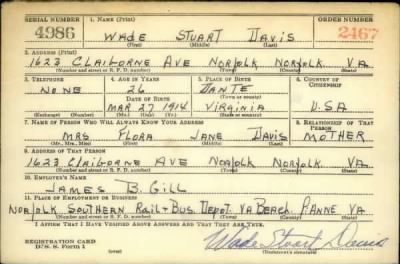 SERIAL NUMBER 1. NAME (Print) ORDER NUMBER
4986 WADE STUART DAVIS 2467
(First) (Middle) (Last)
2. ADDRESS (Print)
1623 CLAIBORNE AVE NORFOLK NORFOLK VA
(Number and street or R. F. D. number) (Town) (County) (State)
3. TELEPHONE 4. AGE IN YEARS 5. PLACE OF BIRTH 6. COUNTRY OF CITIZENSHIP
NONE 26 DANTE
DATE OF BIRTH (Town or county)
MAR 27 1914 VIRGINIA USA
(Exchange) (Number) (Mo.) (Day) (Yr.) (State or country)
7. NAME OF PERSON WHO WILL ALWAYS KNOW YOUR ADDRESS 8. RELATIONSHIP OF THAT PERSON
MRS FLORA JANE DAVIS MOTHER
(Mr., Mrs., Miss) (First) (Middle) (Last)
9. ADDRESS OF THAT PERSON
1623 CLAIBORNE AVE NORFOLK NORFOLK VA
(Number and street or R. F. D. number) (Town) (County) (State)
10. EMPLOYER'S NAME
JAMES B. GILL
11. PLACE OF EMPLOYMENT OR BUSINESS
NORFOLK SOUTHERN RAIL + BUS. DEPOT. VA BEACH P. ANNE VA
(Number and street or R. F. D. number) (Town) (County) (State)
I AFFIRM THAT I HAVE VERIFIED ABOVE ANSWERS AND THAT THEY ARE TRUE.
REGISTRATION CARD
D. S. S. Form 1
Wade Stuart Davis
(Registrant's signature)